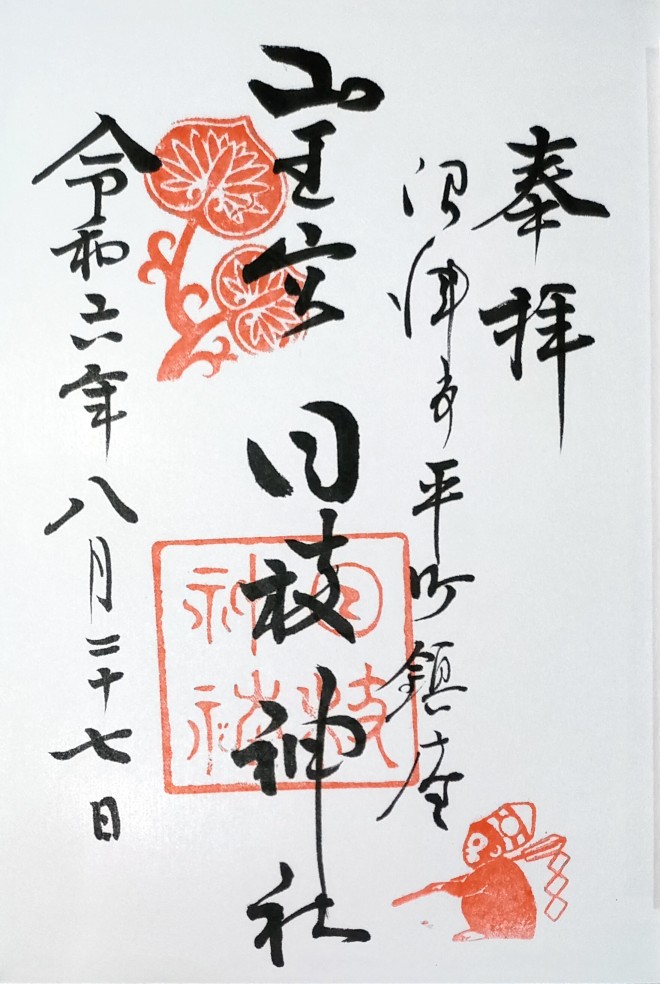 奉拝
沼津市平町鎮座
山王宮 日枝神社
令和六年八月二十七日
日枝
神社